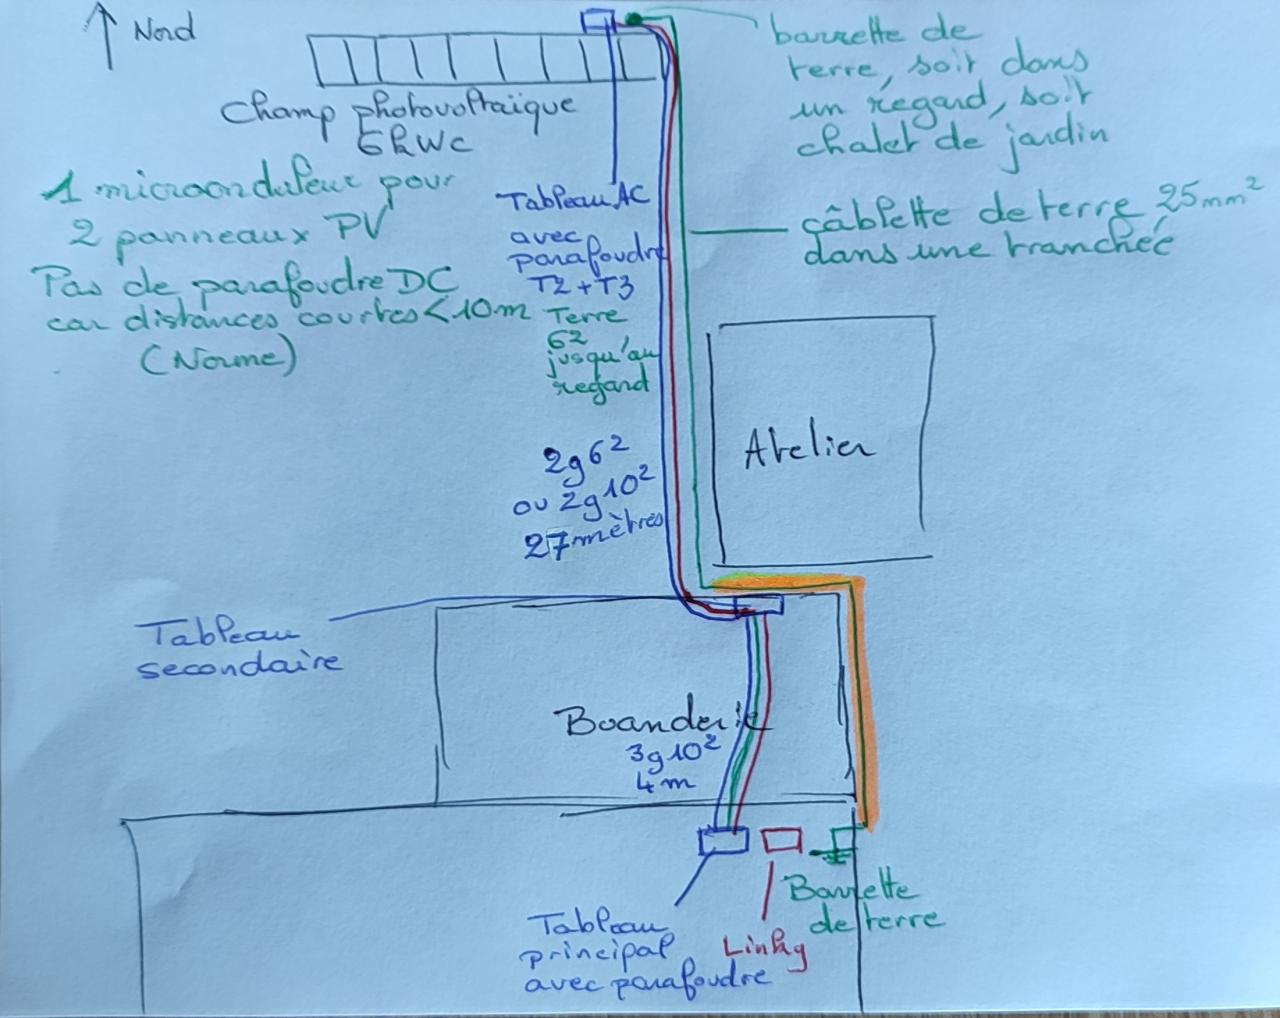 Nord
Champ photovoltaïque
6kWc
barrette de
terre, soit dans
un regard, soit
chalet de jardin
1 microonduleur pour
2 panneaux PV
Pas de parafoudre DC
car distances courtes <10m
(Norme)
Tableau AC
avec
parafoudre
T2+T3
Terre
6²
jusqu'au
regard
câblette de terre 25mm²
dans une tranchée
Atelier
2g6²
ou 2g10²
27 mètres
Tableau
secondaire
Buanderie
3g10²
4m
Tableau
principal
avec parafoudre
Linky
Barrette
de terre